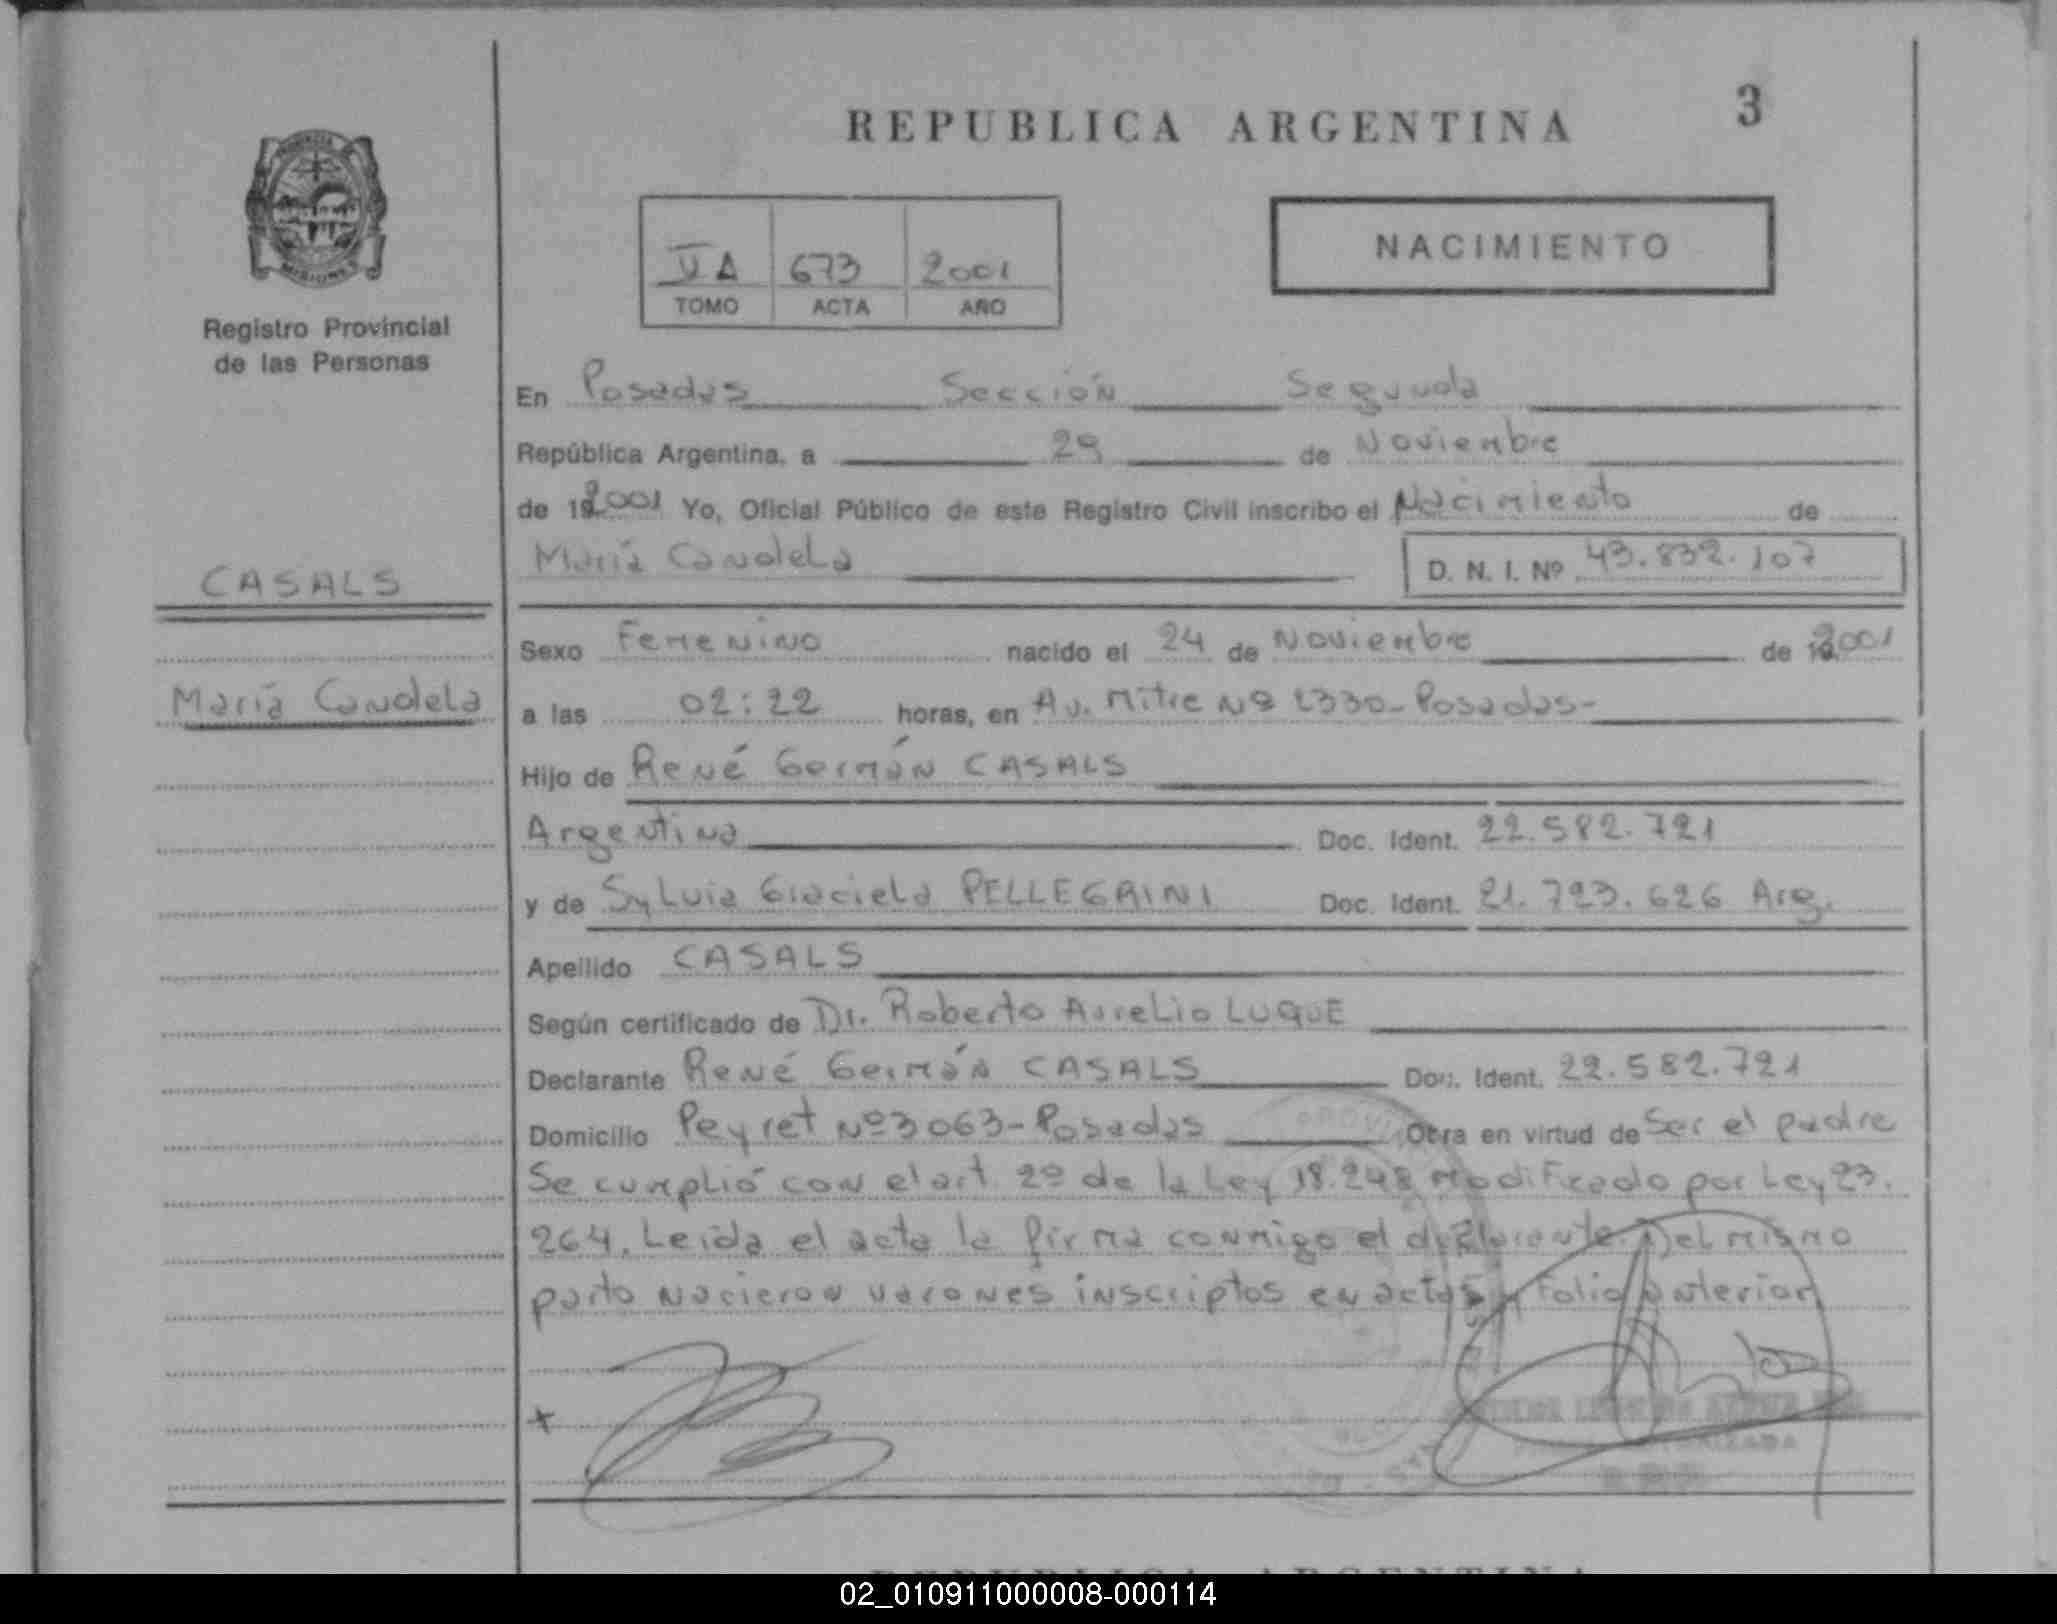 REPUBLICA ARGENTINA
3
MISIONES
Registro Provincial
de las Personas
VA 673 2001
TOMO ACTA AÑO
NACIMIENTO
En Posadas Sección Segunda
República Argentina, a 29 de Noviembre
de 2001 Yo, Oficial Público de este Registro Civil inscribo el Nacimiento de
María Candela D. N. I. Nº 43.832.107
CASALS
María Candela
Sexo Femenino nacido el 24 de Noviembre de 2001
a las 02:22 horas, en Av. Mitre Nº 2330-Posadas-
Hijo de René Germán CASALS
Argentina Doc. Ident. 22.582.721
y de Sylvia Graciela PELLEGRINI Doc. Ident. 21.723.626 Arg.
Apellido CASALS
Según certificado de Dr. Roberto Aurelio LUQUE
Declarante René Germán CASALS Doc. Ident. 22.582.721
Domicilio Peyret Nº3063-Posadas Obra en virtud de Ser el padre
Se cumplió con el art. 2º de la Ley 18.248 modificado por Ley 23.
264. Leida el acta la firma conmigo el declarante. Del mismo
parto Nacieron varones inscriptos en actas y Folio anterior
REPUBLICA ARGENTINA
02_010911000008-000114